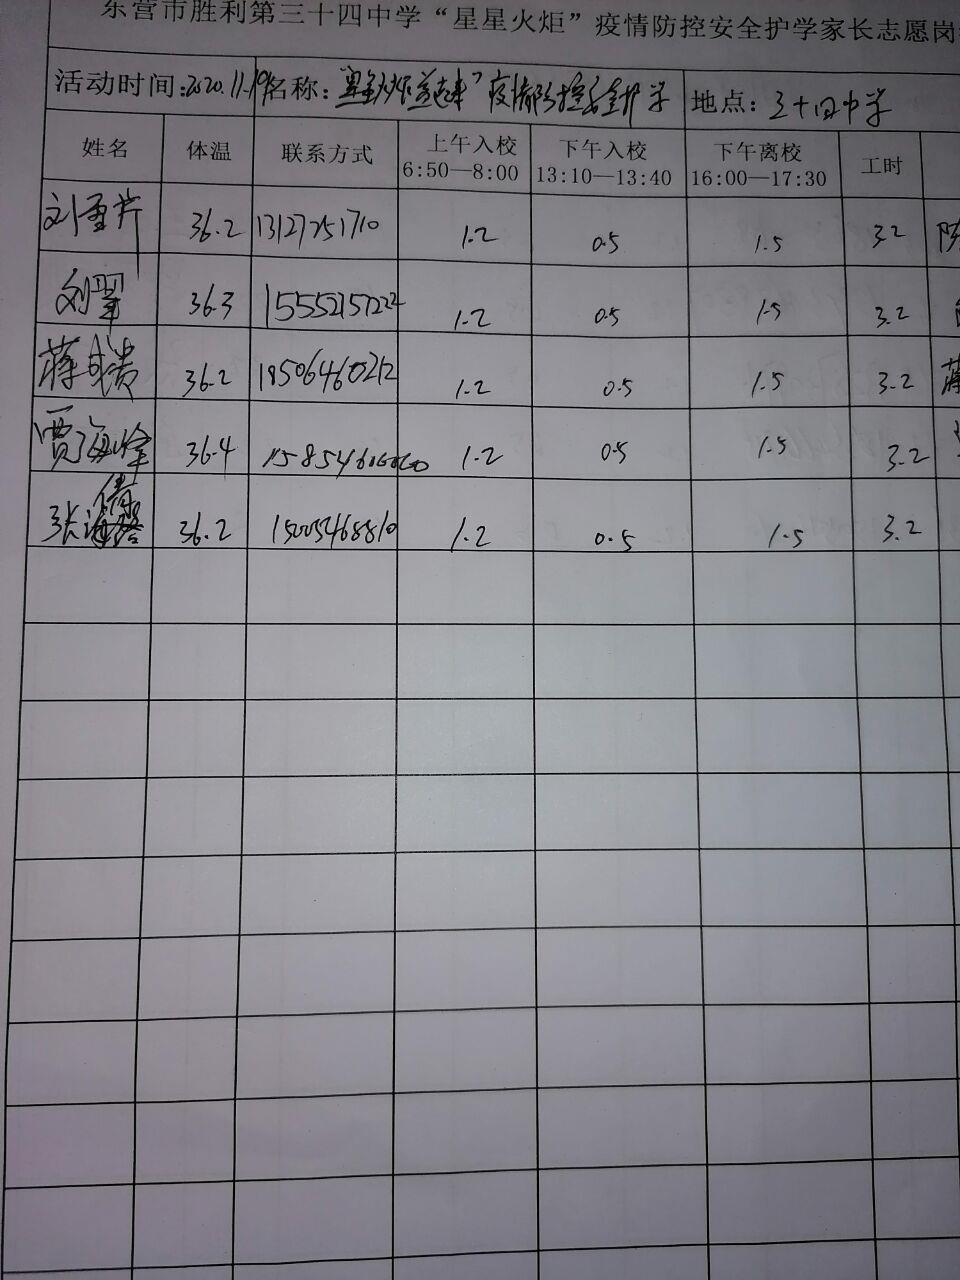 东营市胜利第三十四中学“星星火炬”疫情防控安全护学家长志愿岗
活动时间:2020.11.19 名称: 疫情防控安全护学 地点: 三十四中学
姓名 体温 联系方式 上午入校 6:50—8:00 下午入校 13:10—13:40 下午离校 16:00—17:30 工时
36.2 13127251710 1.2 0.5 1.5 3.2
36.3 15552157222 1.2 0.5 1.5 3.2
蒋成贵 36.2 18506460212 1.2 0.5 1.5 3.2
贾海峰 36.4 1.2 0.5 1.5 3.2
36.2 15005468810 1.2 0.5 1.5 3.2